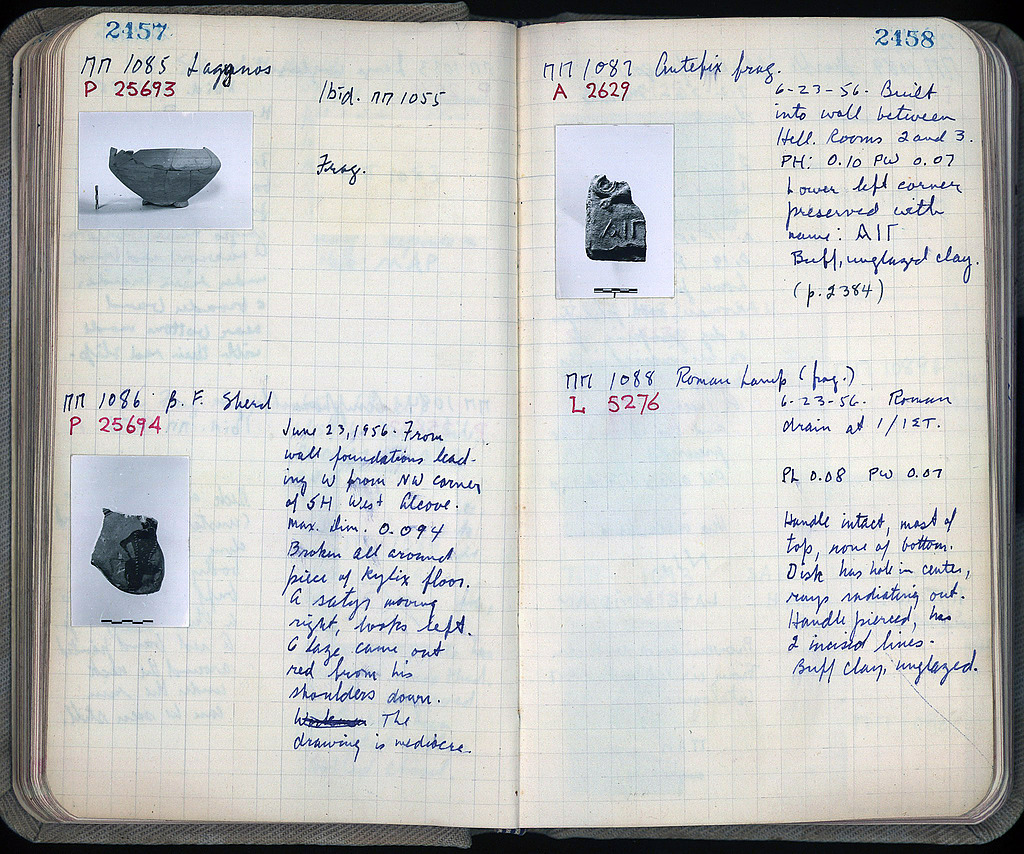 2457
ΠΠ 1085 Lagynos
P 25693
Ibid. ΠΠ 1055
Frag.
ΠΠ 1086 B. F. Sherd
P 25694
June 23, 1956. From
wall foundations lead-
ing W from NW corner
of SH West Alcove.
Max. Dim. 0.094
Broken all around
piece of kylix floor.
A satyr moving
right, looks left.
Glaze came out
red from his
shoulders down.
The
drawing is mediocre.
2458
ΠΠ 1087 Antefix frag.
A 2629
6-23-56. Built
into wall between
Hell. Rooms 2 and 3.
PH: 0.10 PW 0.07
Lower left corner
preserved with
name: ΑΙΓ
Buff, unglazed clay.
(p. 2384)
ΠΠ 1088 Roman Lamp (frag.)
L 5276
6-23-56. Roman
drain at 1/ΙΣΤ.
PL 0.08 PW 0.07
Handle intact, most of
top, none of bottom.
Disk has hole in center,
rays radiating out.
Handle pierced, has
2 incised lines.
Buff clay, unglazed.